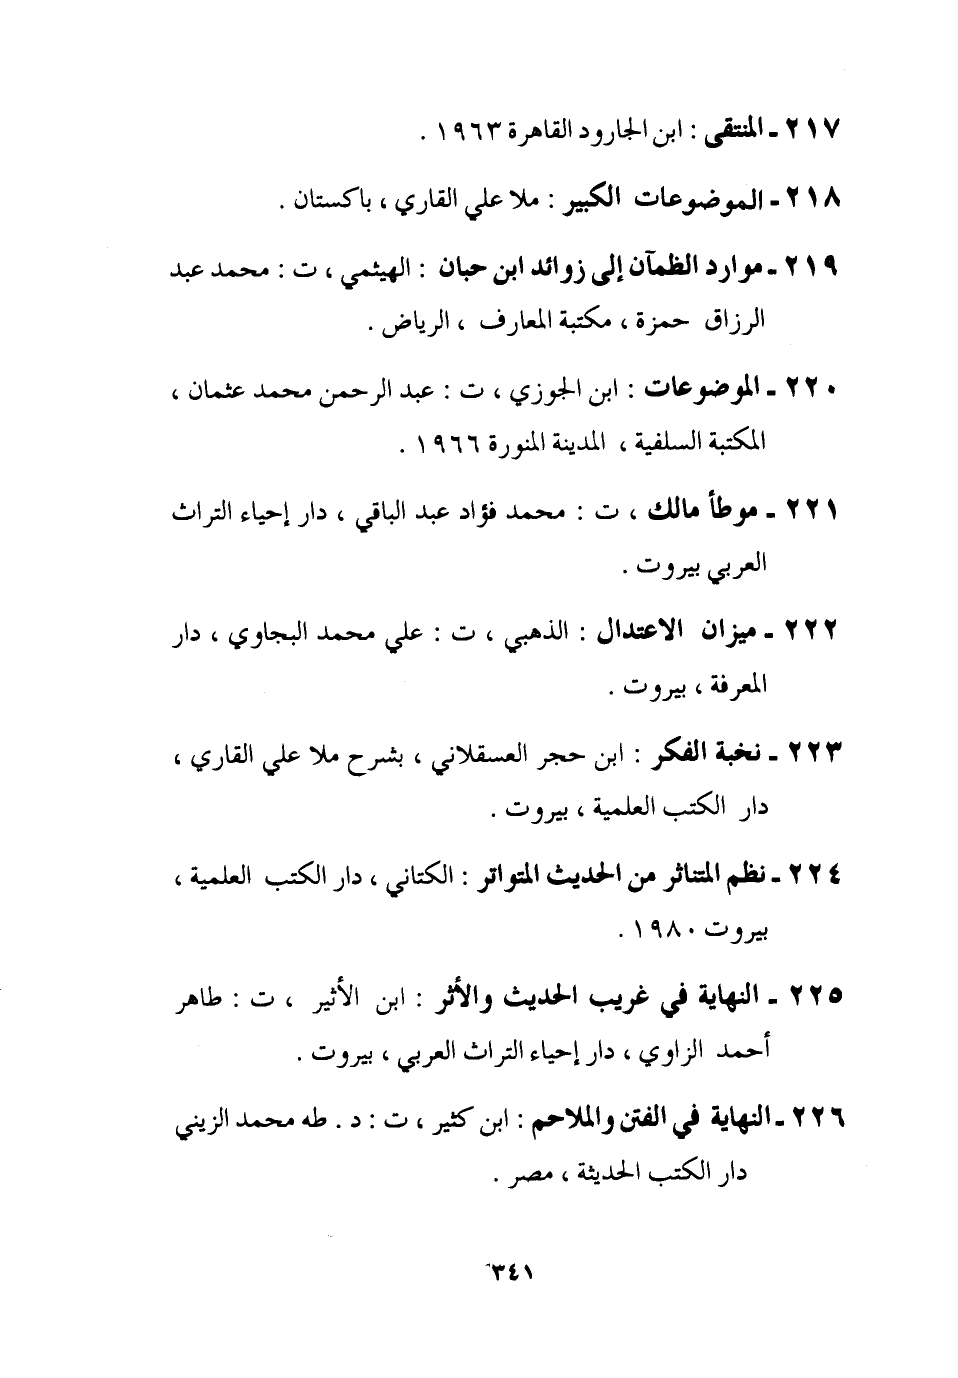 ٢١٧ - المنتقى : ابن الجارود القاهرة ١٩٦٣ .
٢١٨ - الموضوعات الكبير : ملا علي القاري ، باكستان .
٢١٩ - موارد الظمآن إلى زوائد ابن حبان : الهيثمي ، ت : محمد عبد
الرزاق حمزة ، مكتبة المعارف ، الرياض .
٢٢٠ - الموضوعات : ابن الجوزي ، ت : عبد الرحمن محمد عثمان ،
المكتبة السلفية ، المدينة المنورة ١٩٦٦ .
٢٢١ - موطأ مالك ، ت : محمد فؤاد عبد الباقي ، دار إحياء التراث
العربي بيروت .
٢٢٢ - ميزان الاعتدال : الذهبي ، ت : علي محمد البجاوي ، دار
المعرفة ، بيروت .
٢٢٣ - نخبة الفكر : ابن حجر العسقلاني ، بشرح ملا علي القاري ،
دار الكتب العلمية ، بيروت .
٢٢٤ - نظم المتناثر من الحديث المتواتر : الكتاني ، دار الكتب العلمية ،
بيروت ١٩٨٠ .
٢٢٥ - النهاية في غريب الحديث والأثر : ابن الأثير ، ت : طاهر
أحمد الزاوي ، دار إحياء التراث العربي ، بيروت .
٢٢٦ - النهاية في الفتن والملاحم : ابن كثير ، ت : د . طه محمد الزيني
دار الكتب الحديثة ، مصر .
٣٤١